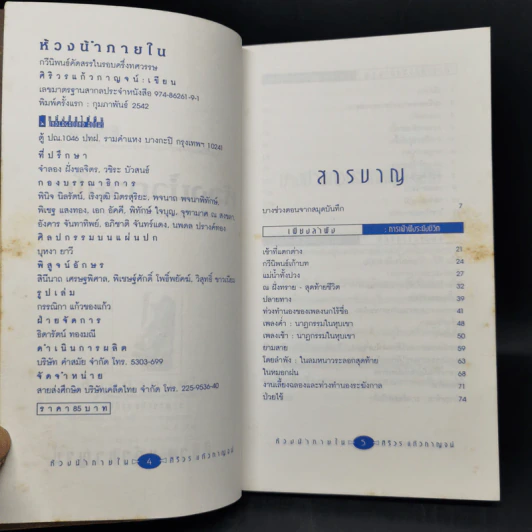 ห้วงน้ำภายใน
กวีนิพนธ์คัดสรรในรอบครึ่งทศวรรษ
ศิริวร แก้วกาญจน์ : เขียน
เลขมาตรฐานสากลประจำหนังสือ 974-86261-9-1
พิมพ์ครั้งแรก : กุมภาพันธ์ 2542
ตู้ ปณ.1046 ปทฝ. รามคำแหง บางกะปิ กรุงเทพฯ 10241
ที่ปรึกษา
จำลอง ฝั่งชลจิตร, วชิระ บัวสนธ์
กองบรรณาธิการ
พินิจ นิลรัตน์, เริงวุฒิ มิตรสุริยะ, พจนาถ พจนาพิทักษ์
พิเชฐ แสงทอง, เอก อัคคี, พิทักษ์ ใจบุญ, จุฑามาศ ณ สงขลา
อังคาร จันทาทิพย์, อภิชาติ จันทร์แดง, นพดล ปรางค์ทอง
ศิลปกรรมบนแผ่นปก
บุหงา ยาวี
พิสูจน์อักษร
สินีนาถ เศรษฐพิศาล, พิเชษฐ์ศักดิ์ โพธิ์พยัคฆ์, วิสุทธิ์ ขาวเนียม
รูปเล่ม
กรรณิกา แก้วของแก้ว
ฝ่ายจัดการ
ธิดารัตน์ ทองมณี
ดำเนินการผลิต
บริษัท คำสมัย จำกัด โทร. 5303-699
จัดจำหน่าย
สายส่งศึกษิต บริษัทเคล็ดไทย จำกัด โทร. 225-9536-40
ราคา 85 บาท
ห้วงน้ำภายใน 4 ศิริวร แก้วกาญจน์
สารบาญ
บางช่วงตอนจากสมุดบันทึก 7
เพียงลำพัง : การเฝ้าฟังระฆังชีวิต
เช้าที่แตกต่าง 21
กวีนิพนธ์เก้าบท 24
แม่น้ำทั้งปวง 27
ณ ฝั่งทราย - สุดท้ายชีวิต 32
ปลายทาง 39
ท่วงทำนองของเพลงนกไร้ชื่อ 41
เพลงค่ำ : นาฏกรรมในหุบเขา 48
เพลงเช้า : นาฏกรรมในหุบเขา 50
ยามสาย 60
โดยลำพัง : ในลมหนาวระลอกสุดท้าย 63
ในหมอกฝน 68
งานเลี้ยงฉลองและท่วงทำนองระฆังกาล 71
ป่วยไข้ 74
ห้วงน้ำภายใน 5 ศิริวร แก้วกาญจน์